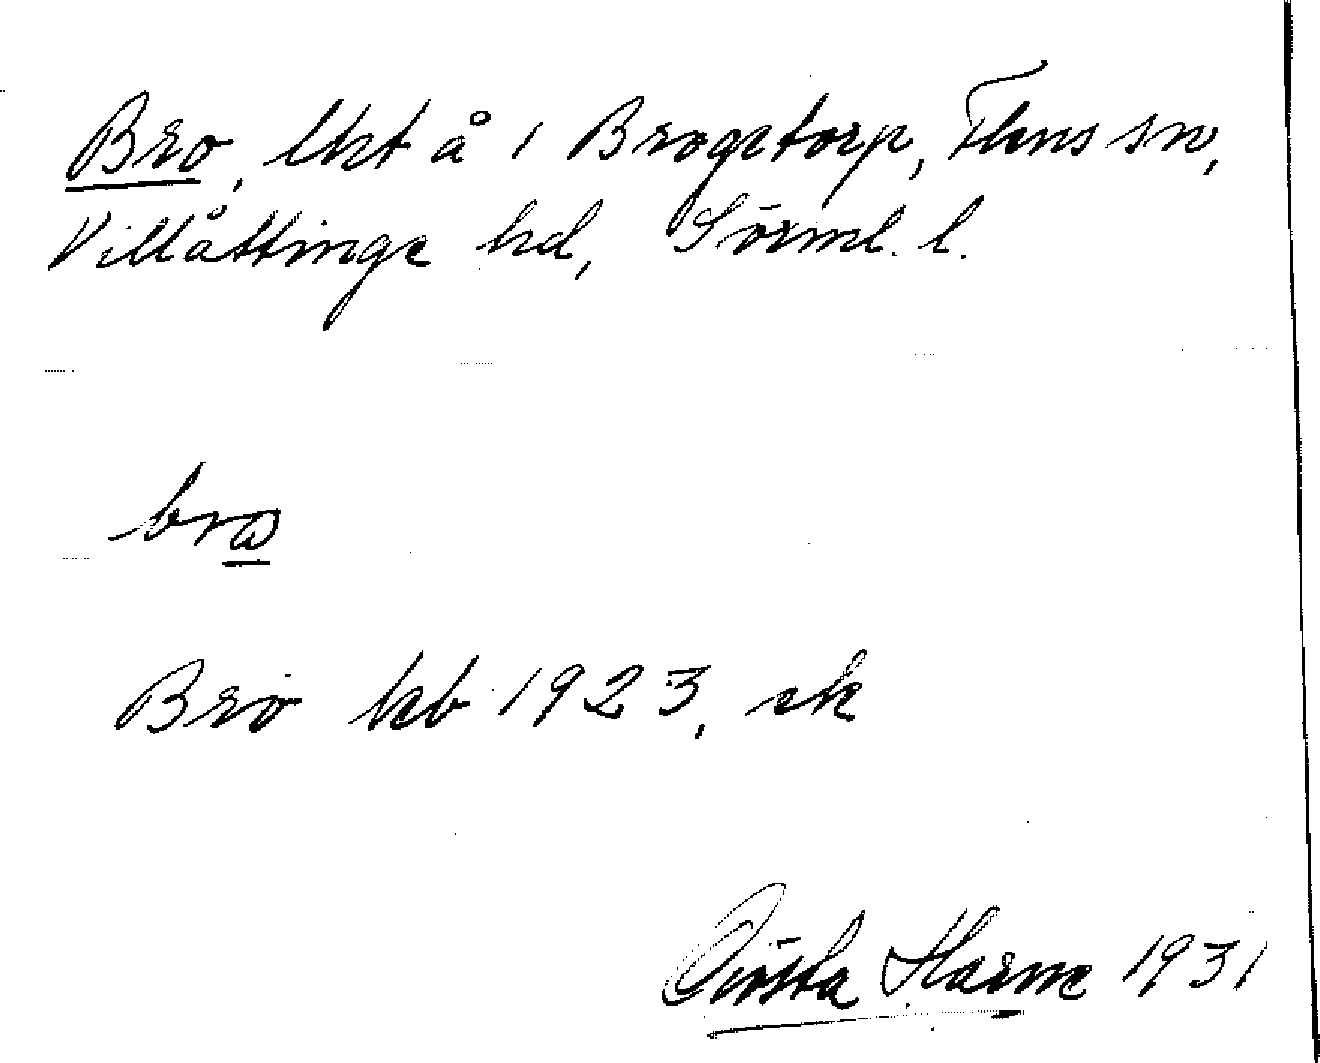 Bro, lht å i Brogetorp, Flens sn,
Villåttinge hd, Sörml. l.
bro
Bro kb 1923, ek
Gösta Harme 1931